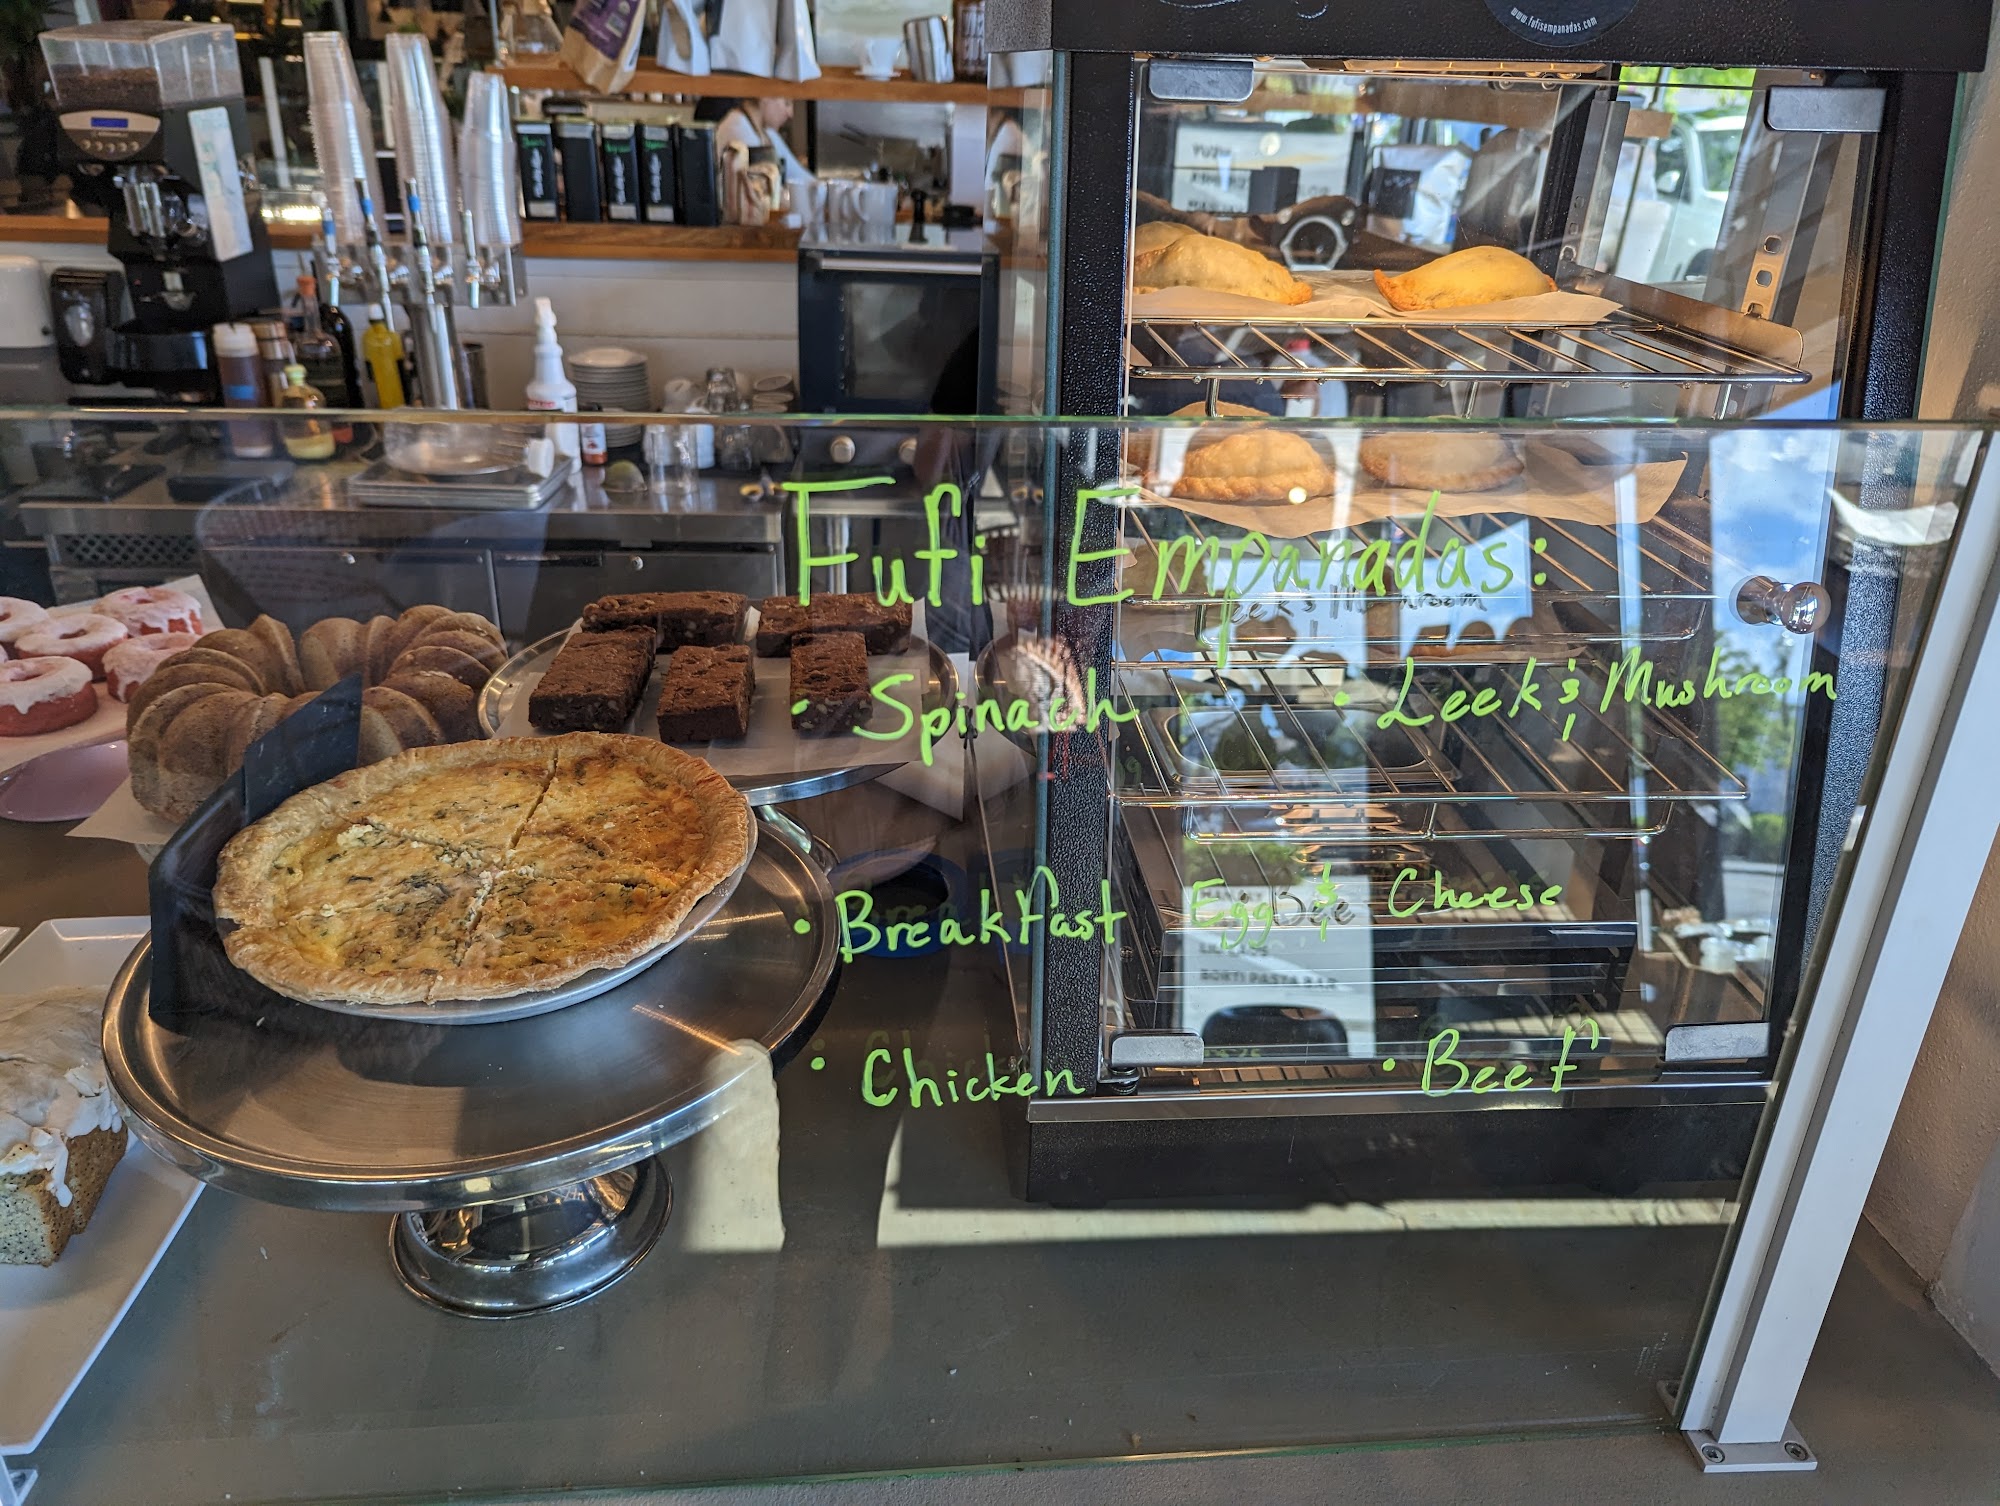 www.fufisempanadas.com
Fufi Empanadas:
• Spinach • Leek & Mushroom
• Breakfast Egg & Cheese
• Chicken • Beef
BOKTI PASTA BAR